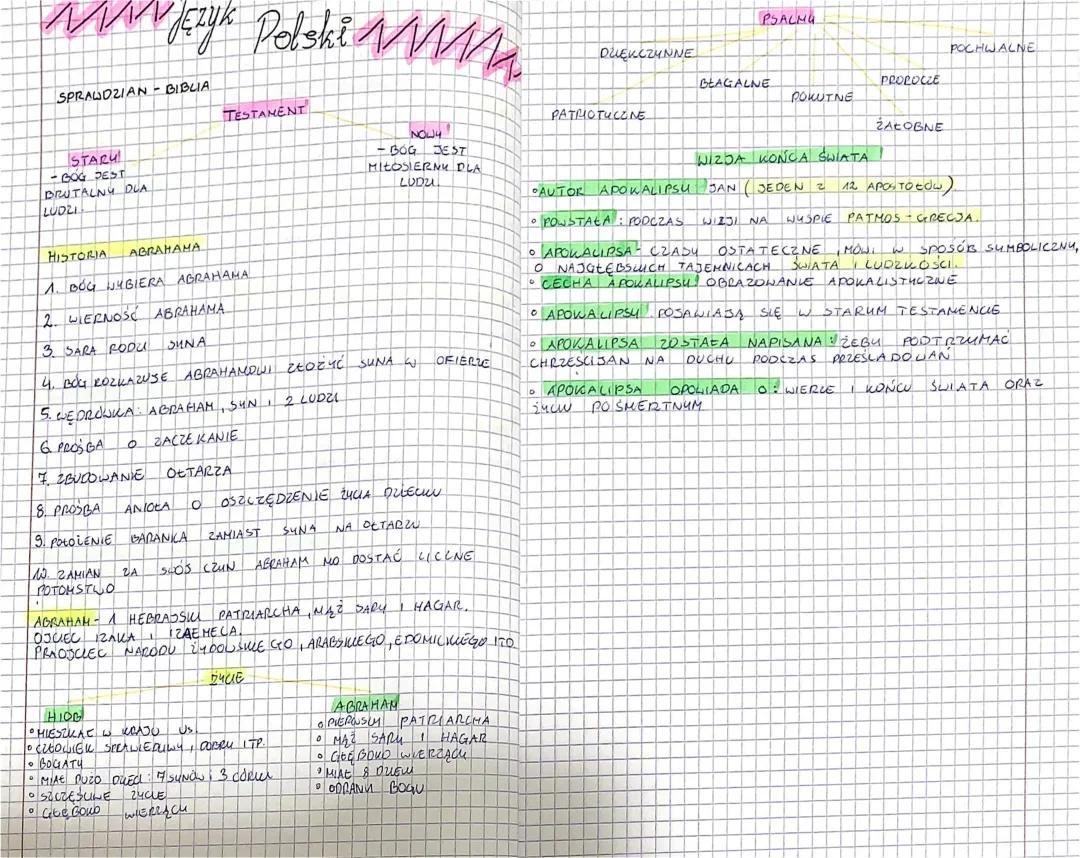 JĘZYK Polski
SPRAWDZIAN - BIBLIA
TESTAMENT
STARY
- BÓG JEST
BRUTALNY DLA
LUDZI.
NOWY
- BÓG JEST
MIŁOSIERNY DLA
LUDZI.
HISTORIA ABRAHAMA
1. BÓG WYBIERA ABRAHAMA
2. WIERNOŚĆ ABRAHAMA
3. SARA RODZI SYNA
4. BÓG ROZKAZUJE ABRAHAMOWI ZŁOŻYĆ SYNA W OFIERZE
5. WĘDRÓWKA: ABRAHAM, SYN I 2 LUDZI
6. PROŚBA O ZACZEKANIE
7. ZBUDOWANIE OŁTARZA
8. PROŚBA ANIOŁA O OSZCZĘDZENIE ŻYCIA DZIECKU
9. POŁOŻENIE BARANKA ZAMIAST SYNA NA OŁTARZU
10. ZAMIAN ZA SWÓJ CZYN ABRAHAM MO DOSTAĆ LICZNE
POTOMSTWO
ABRAHAM - 1 HEBRAJSKI PATRIARCHA, MĄŻ SARY I HAGAR.
OJCIEC IZAKA I IZAEMELA.
PRAOJCIEC NARODU ŻYDOWSKIEGO, ARABSKIEGO, EDOMICKIEGO ITD.
ŻYCIE
HIOB
• MIESZKAŁ W KRAJU US.
• CZŁOWIEK SPRAWIEDLIWY, DOBRY ITP.
• BOGATY
• MIAŁ DUŻO DZIECI: 7 SYNÓW I 3 CÓRKI
• SZCZĘŚLIWE ŻYCIE
• GŁĘBOKO WIERZĄCY
ABRAHAM
• PIERWSZY PATRIARCHA
• MĄŻ SARY I HAGAR
• GŁĘBOKO WIERZĄCY
• MIAŁ 8 DZIECI
• ODDANY BOGU
PSALMY
DZIĘKCZYNNE
POCHWALNE
BŁAGALNE
PROROCZE
POKUTNE
PATRIOTYCZNE
ŻAŁOBNE
WIZJA KOŃCA ŚWIATA
• AUTOR APOKALIPSY JAN (JEDEN Z 12 APOSTOŁÓW)
• POWSTAŁA: PODCZAS WIZJI NA WYSPIE PATMOS - GRECJA.
• APOKALIPSA - CZASY OSTATECZNE, MÓWI W SPOSÓB SYMBOLICZNY,
O NAJGŁĘBSZYCH TAJEMNICACH ŚWIATA I LUDZKOŚCI.
• CECHA APOKALIPSY: OBRAZOWANIE APOKALISTYCZNE
• APOKALIPSY POJAWIAJĄ SIĘ W STARYM TESTAMENCIE
• APOKALIPSA ZOSTAŁA NAPISANA: ŻEBY PODTRZYMAĆ
CHRZEŚCIJAN NA DUCHU PODCZAS PRZEŚLADOWAŃ
• APOKALIPSA OPOWIADA O: WIERZE I KOŃCU ŚWIATA ORAZ
ŻYCIU POŚMERTNYM